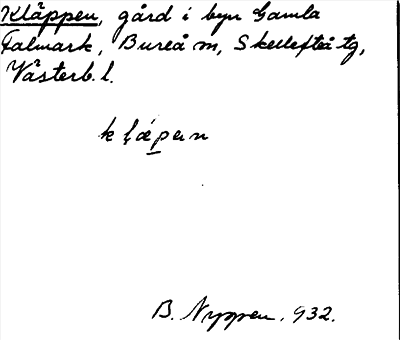 Kläppen, gård i byn Gamla
Falmark, Bureå sn, Skellefteå tg,
Västerb. l.
kḷǽp̲ən
B. Nyppen. 932.